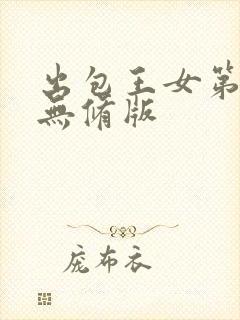 出包王女第
無修版
庞布衣